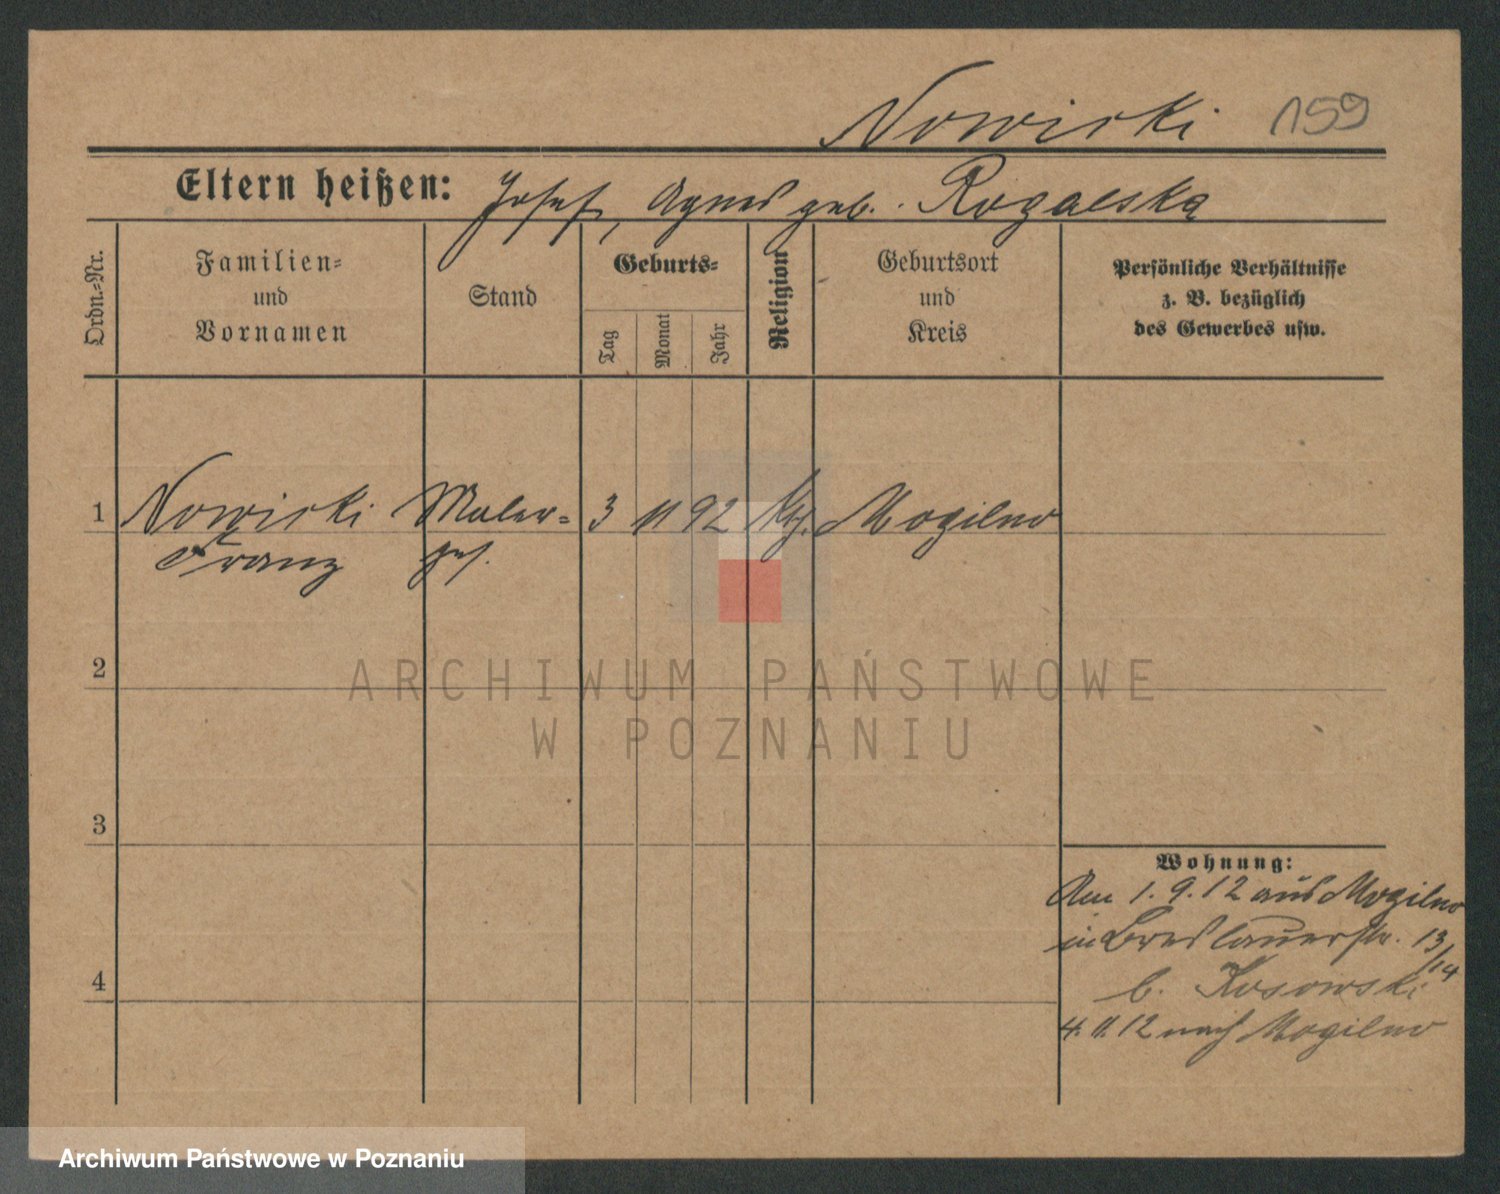 Nowicki 159
Eltern heißen: Josef, Agnes geb. Rogalska
Ordn.-Nr.
Familien-
und
Vornamen
Stand
Geburts-
Tag
Monat
Jahr
Religion
Geburtsort
und
Kreis
Persönliche Verhältnisse
z. B. bezüglich
des Gewerbes usw.
1 Nowicki Maler- 3 11 92 Mogilno
Franz ges.
2
ARCHIWUM PAŃSTWOWE
W POZNANIU
3
Wohnung:
Am 1.9.12 aus Mogilno
in Breslauerstr. 13/14
b. Kosowski
4
4.11.12 nach Mogilno
Archiwum Państwowe w Poznaniu